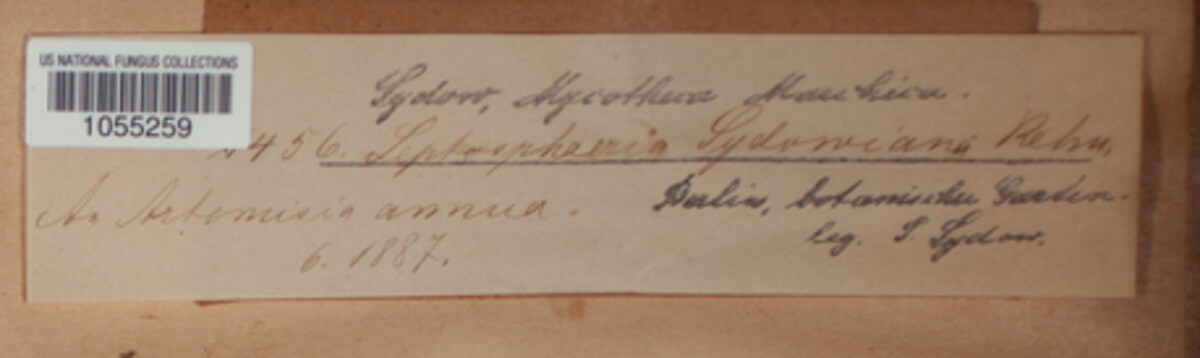 US NATIONAL FUNGUS COLLECTIONS
1055259
Sydow, Mycotheca Marchica.
456. Leptosphaeria Sydowiana Rehm.
An Artemisia annua.
6. 1887.
Berlin, botanischer Garten.
leg. P. Sydow.